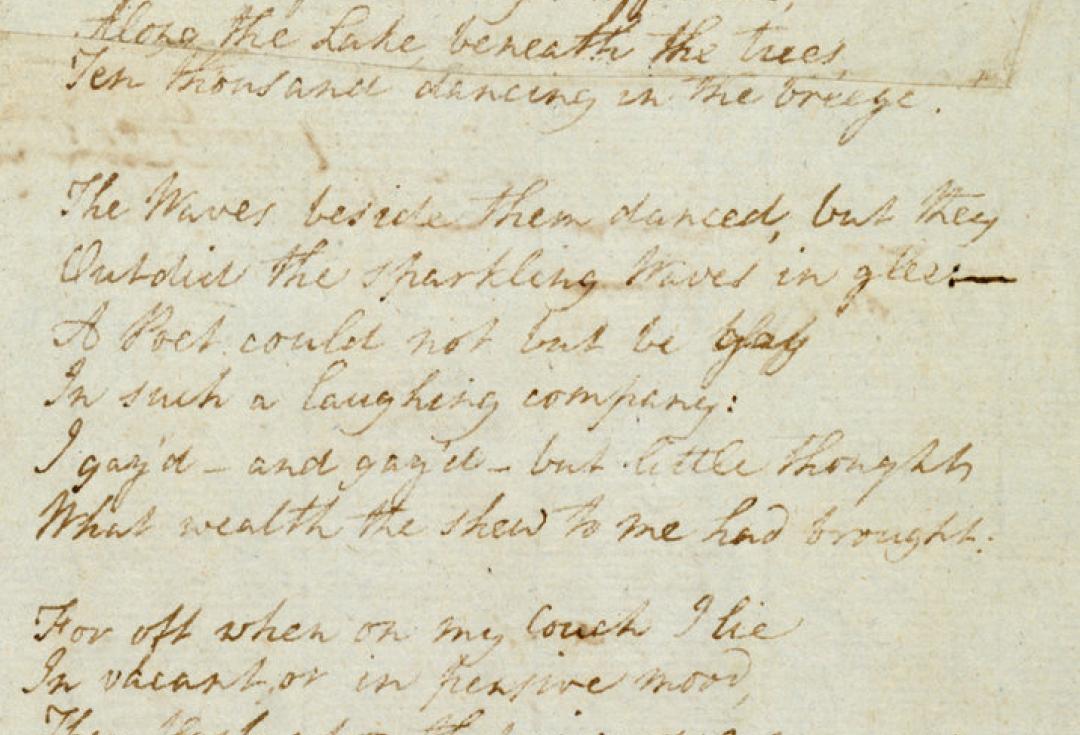 Along the Lake, beneath the trees,
Ten thousand dancing in the breeze.
The Waves beside them danced, but they
Outdid the sparkling Waves in glee:—
A Poet could not but be gay
In such a laughing company:
I gaz'd – and gaz'd – but little thought
What wealth the shew to me had brought:
For oft when on my couch I lie
In vacant, or in pensive mood,